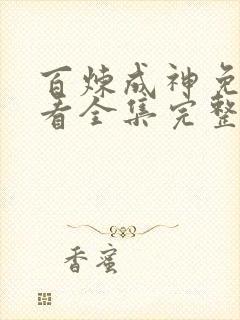 百炼成神免
看全集完整
香蜜